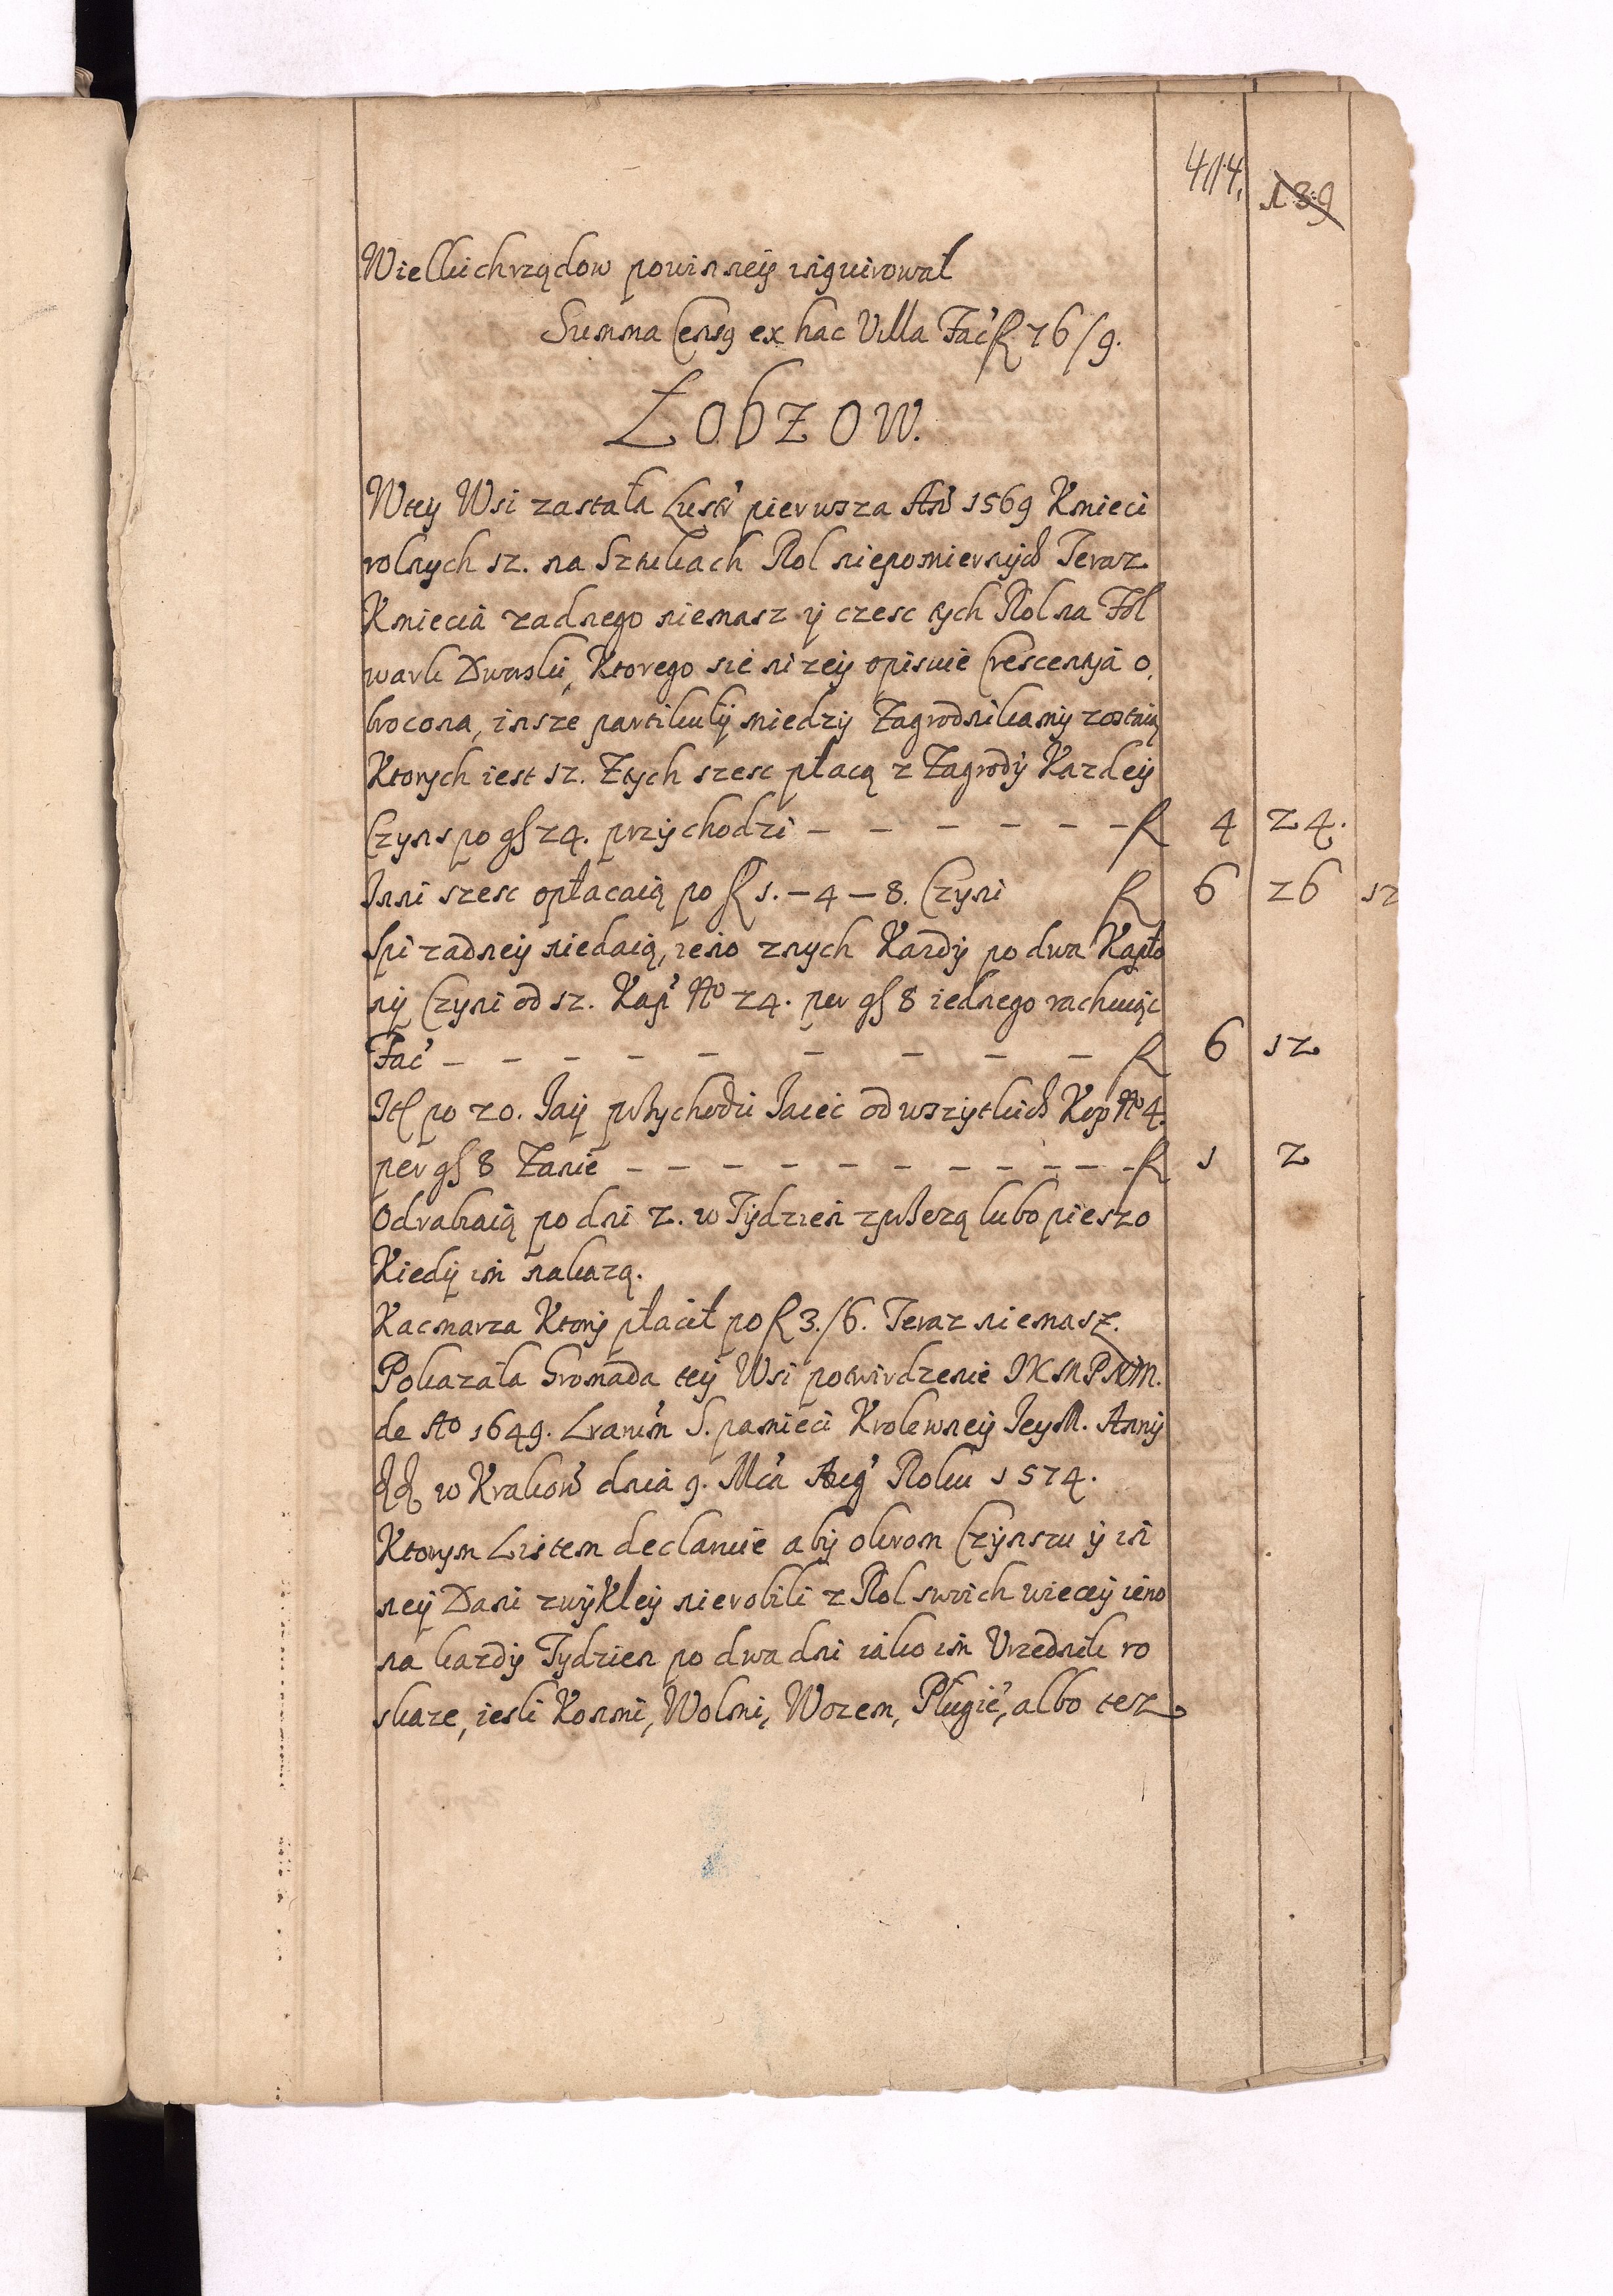 414. 139
Wielkichrządow powinneÿ inquirował
Summa Censꝰ ex hac Villa Fac̄ fl 26/9.
ŁOBZOW.
Wteÿ Wsi zastała Lustr̄ pierwsza An̄o 1569 Kmieci
rolnych 12. na Sztukach Rol niepomiernÿch Teraz
Kmiecia zadnego niemasz ÿ czesc tych Rol na Fol
wark Dworski, Ktorego sie nizeÿ opisuie Crescentia o,
brocona, insze partikułÿ miedzÿ Zagrodnikamÿ zostaią
Ktorych iest 12. Ztych szesc płacą z Zagrodÿ Kazdeÿ
Czyns po gß 24. przÿchodzi – – – – – – fl 4 24.
Inni szesc opłacaią po fl 1.–4–8. Czyni fl 6 26 12
Spi zadneÿ niedaią, ieno znych Kazdÿ po dwa Kapło
nÿ Czyni od 12. Kap̄ No 24. per gß 8 iednego rachuiąc
Fac̄ – – – – – – – – – fl 6 12
Itē po 20. Iaÿ przychodzi Iaiec od wszytkich Kop No 4.
per gß 8 Zanie – – – – – – – – – – – fl 1 2
Odrabiaią po dni 2. w Tÿdzien zprzezą lubo pieszo
Kiedÿ im nakazą.
Kacmarza Ktorÿ płacił po fl 3./6. Teraz niemasz.
Pokazała Gromada teÿ Wsi potwirdzenie IKMPNM.
de Ao 1649. S. pamieci Krolewneÿ IeyM. Annÿ
w Krakow̄ dnia 9. Mc̄a Auḡ Roku 1574.
Ktorym Listem declaruie abÿ okrom Czÿnszu ÿ in
neÿ Dani zwÿkleÿ nierobili z Rol swoich wiecey ieno
na kazdÿ Tydzien po dwa dni iako im Vrzednik ro
skaze, iesli Konmi, Wolmi, Wozem, Pługie, albo tez